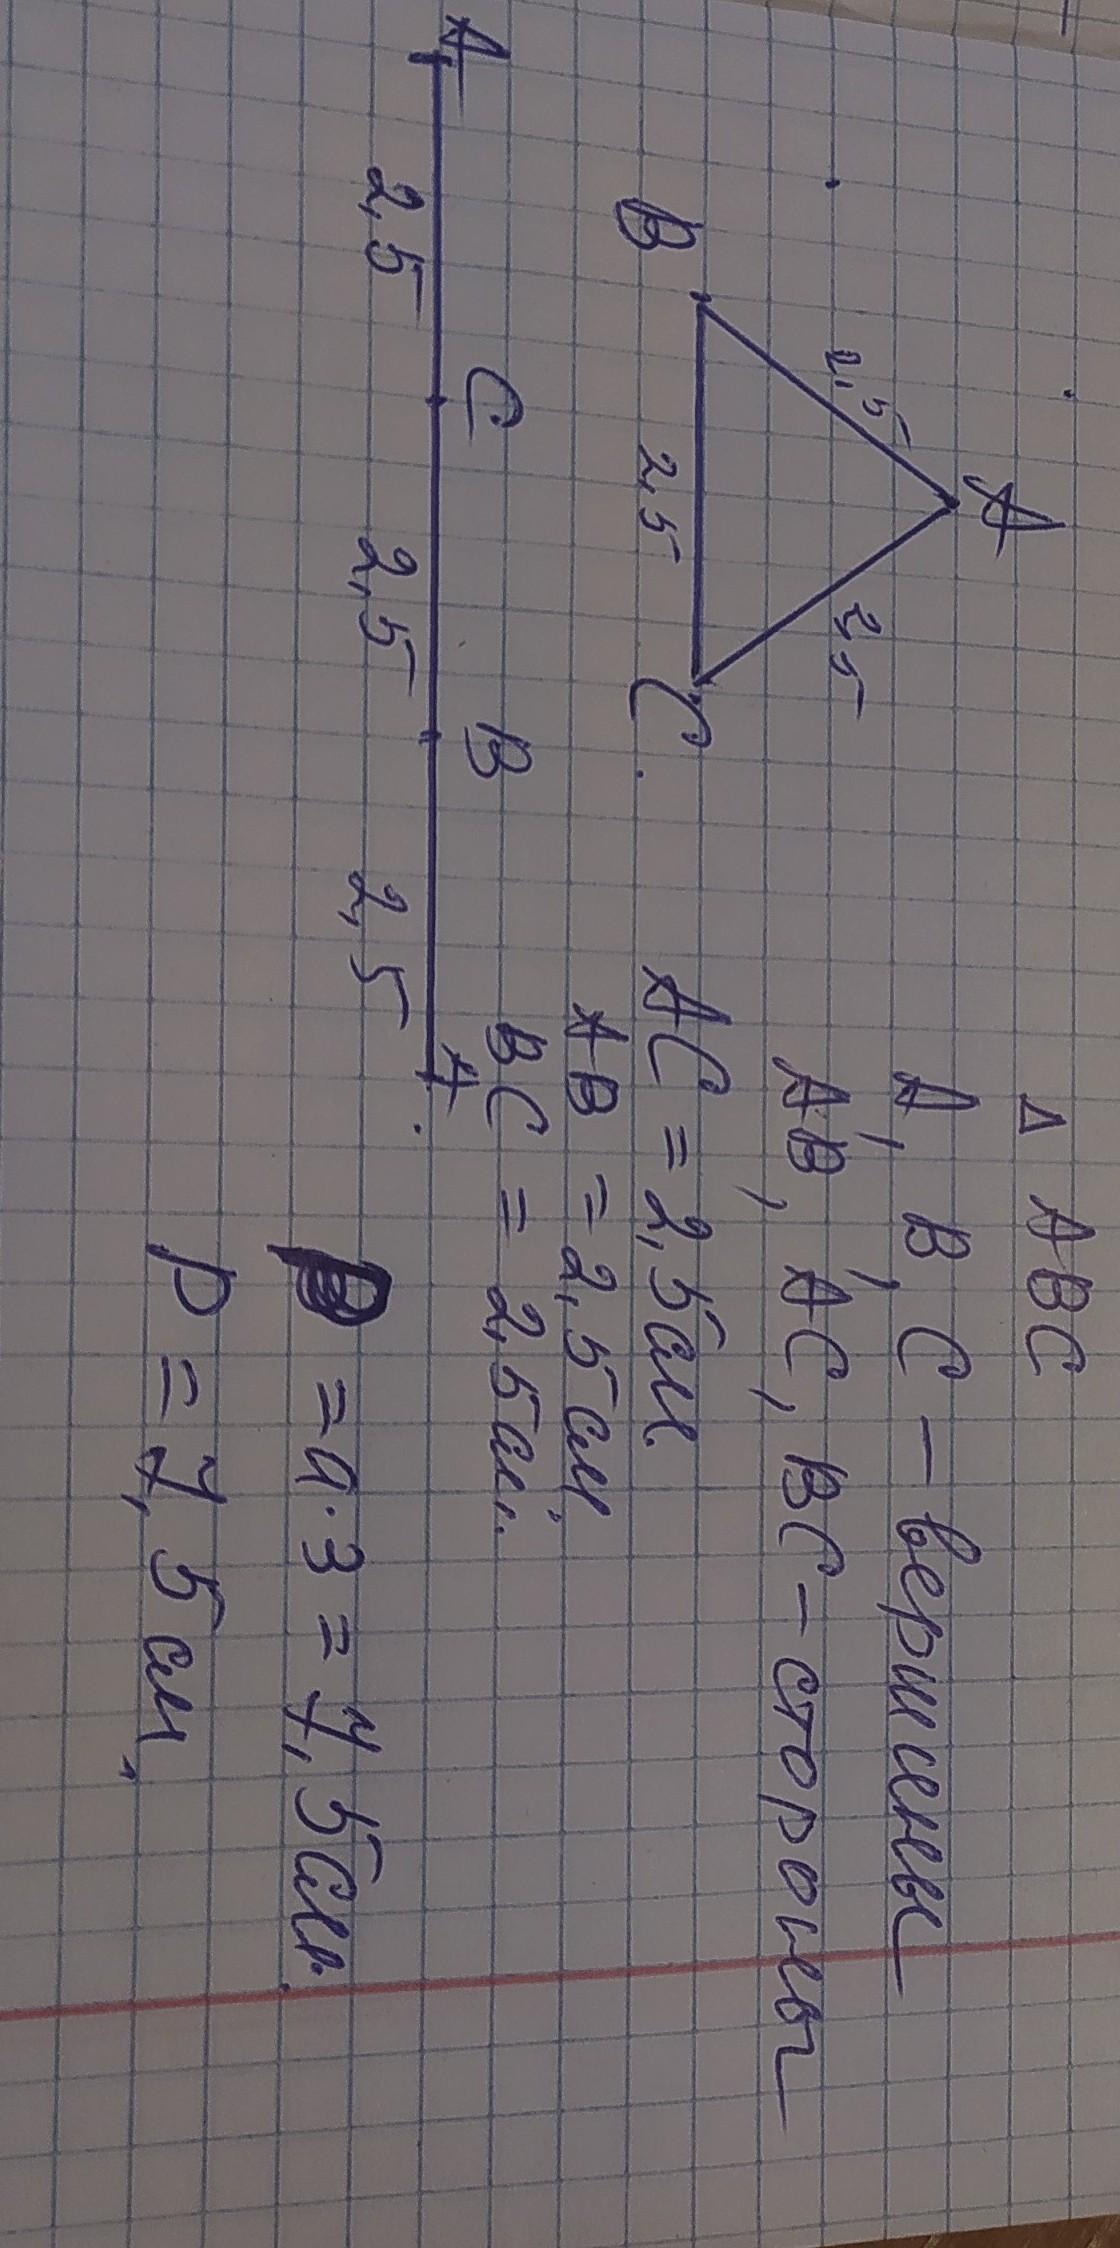 Δ ABC
A, B, C – вершины
AB, AC, BC – стороны
A
2,5
2,5
B
2,5
C
AC = 2,5 см.
AB = 2,5 см.
BC = 2,5 см.
A
C
B
A
2,5
2,5
2,5
P = a · 3 = 7,5 см.
P = 7,5 см.